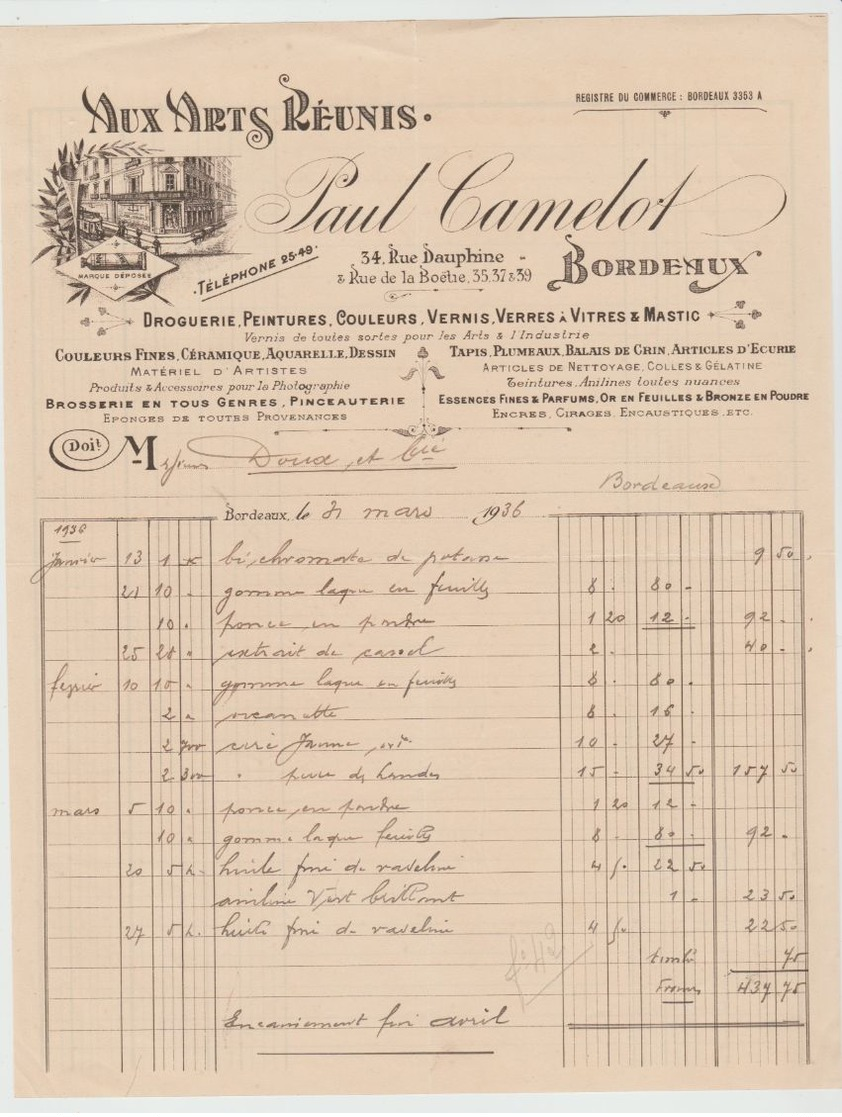 AUX ARTS RÉUNIS.
REGISTRE DU COMMERCE : BORDEAUX 3353 A
Paul Camelot
MARQUE DÉPOSÉE
TÉLÉPHONE 25-49.
34, Rue Dauphine
& Rue de la Boëtie, 35, 37 & 39
BORDEAUX
DROGUERIE, PEINTURES, COULEURS, VERNIS, VERRES À VITRES & MASTIC
Vernis de toutes sortes pour les Arts & l'Industrie
COULEURS FINES, CÉRAMIQUE, AQUARELLE, DESSIN
MATÉRIEL D'ARTISTES
Produits & Accessoires pour la Photographie
BROSSERIE EN TOUS GENRES, PINCEAUTERIE
EPONGES DE TOUTES PROVENANCES
TAPIS, PLUMEAUX, BALAIS DE CRIN, ARTICLES D'ECURIE
ARTICLES DE NETTOYAGE, COLLES & GÉLATINE
Teintures, Anilines toutes nuances
ESSENCES FINES & PARFUMS, OR EN FEUILLES & BRONZE EN POUDRE
ENCRES, CIRAGES, ENCAUSTIQUES, ETC.
Doit Messieurs Doux et Cie
Bordeaux
Bordeaux, le 31 mars 1936
1936
Janvier 13 1 K bichromate de potasse 9 50
21 10 " gomme laque en feuilles 8 - 80 -
10 " ponce en poudre 1 20 12 - 92 -
25 20 " extrait de cassel 2 - 40 -
fevrier 10 10 " gomme laque en feuilles 8 - 80 -
2 " orcanette 8 - 16 -
2 700 cire Jaune 10 - 27 -
2 300 " pure des Landes 15 - 34 50 157 50
mars 5 10 " ponce en poudre 1 20 12 -
10 " gomme laque feuilles 8 - 80 - 92 -
20 5 L. huile fine de vaseline 4 50 22 50
aniline Vert brillant 1 - 23 50
27 5 L. huile fine de vaseline 4 50 22 50
timbre 75
Francs 437 75
Encaissement fin avril